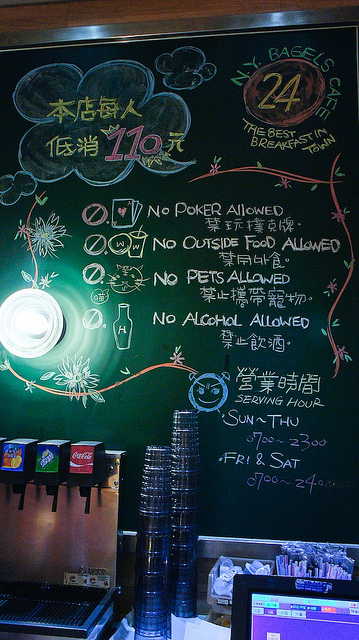 N.Y. BAGELS CAFE
24
THE BEST
BREAKFAST IN
TOWN
本店每人
低消110元
NO POKER AllOWED
禁玩撲克牌.
NO OUTSIDE FOOD ALLOWED
禁用外食.
NO PETS ALLOWED
禁止攜帶寵物.
NO ALCOHOL ALLOWED
禁止飲酒.
H
營業時間
SERVING HOUR
·SUN~THU
0700~2300
·FRI & SAT
0700~2400
Coca-Cola